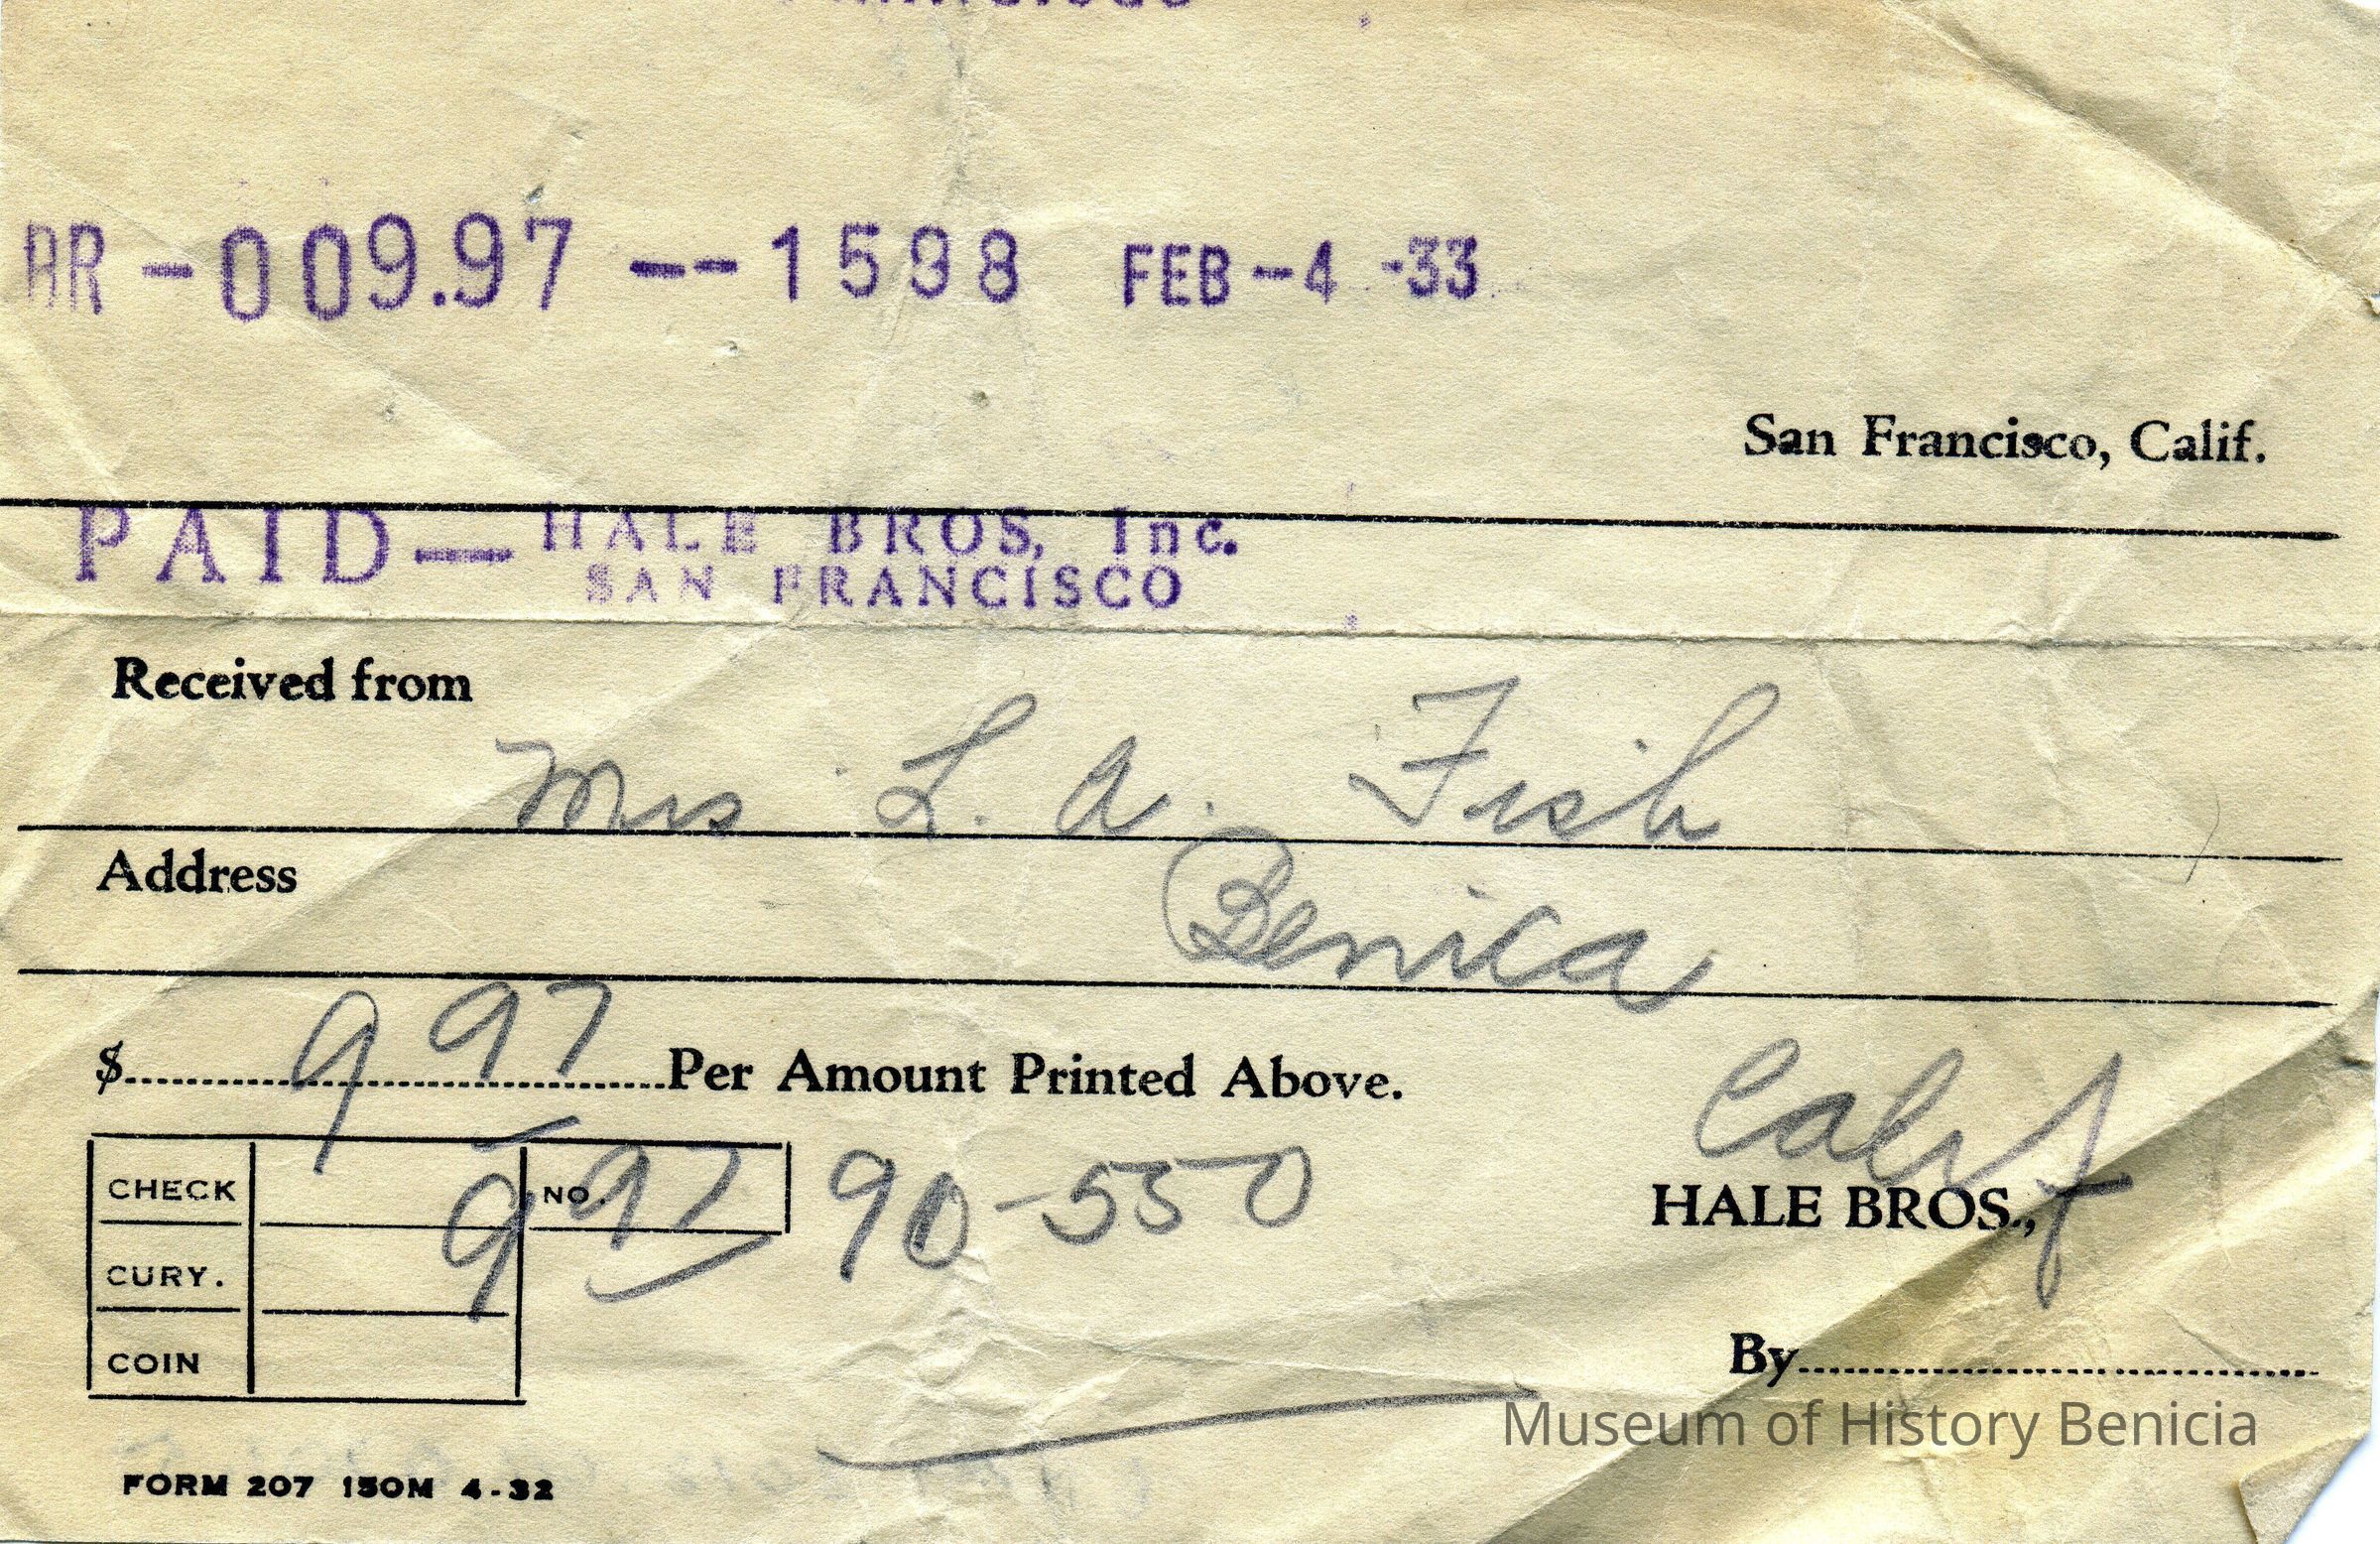 AR -009.97 --1598 FEB -4 -33
San Francisco, Calif.
PAID — HALE BROS, Inc.
SAN FRANCISCO
Received from
Mrs L. A. Fish
Address
Benica
$ 9 97 Per Amount Printed Above.
Calif
CHECK 9 97 NO. 90-550
HALE BROS.,
CURY.
COIN
By
Museum of History Benicia
FORM 207 150M 4-32